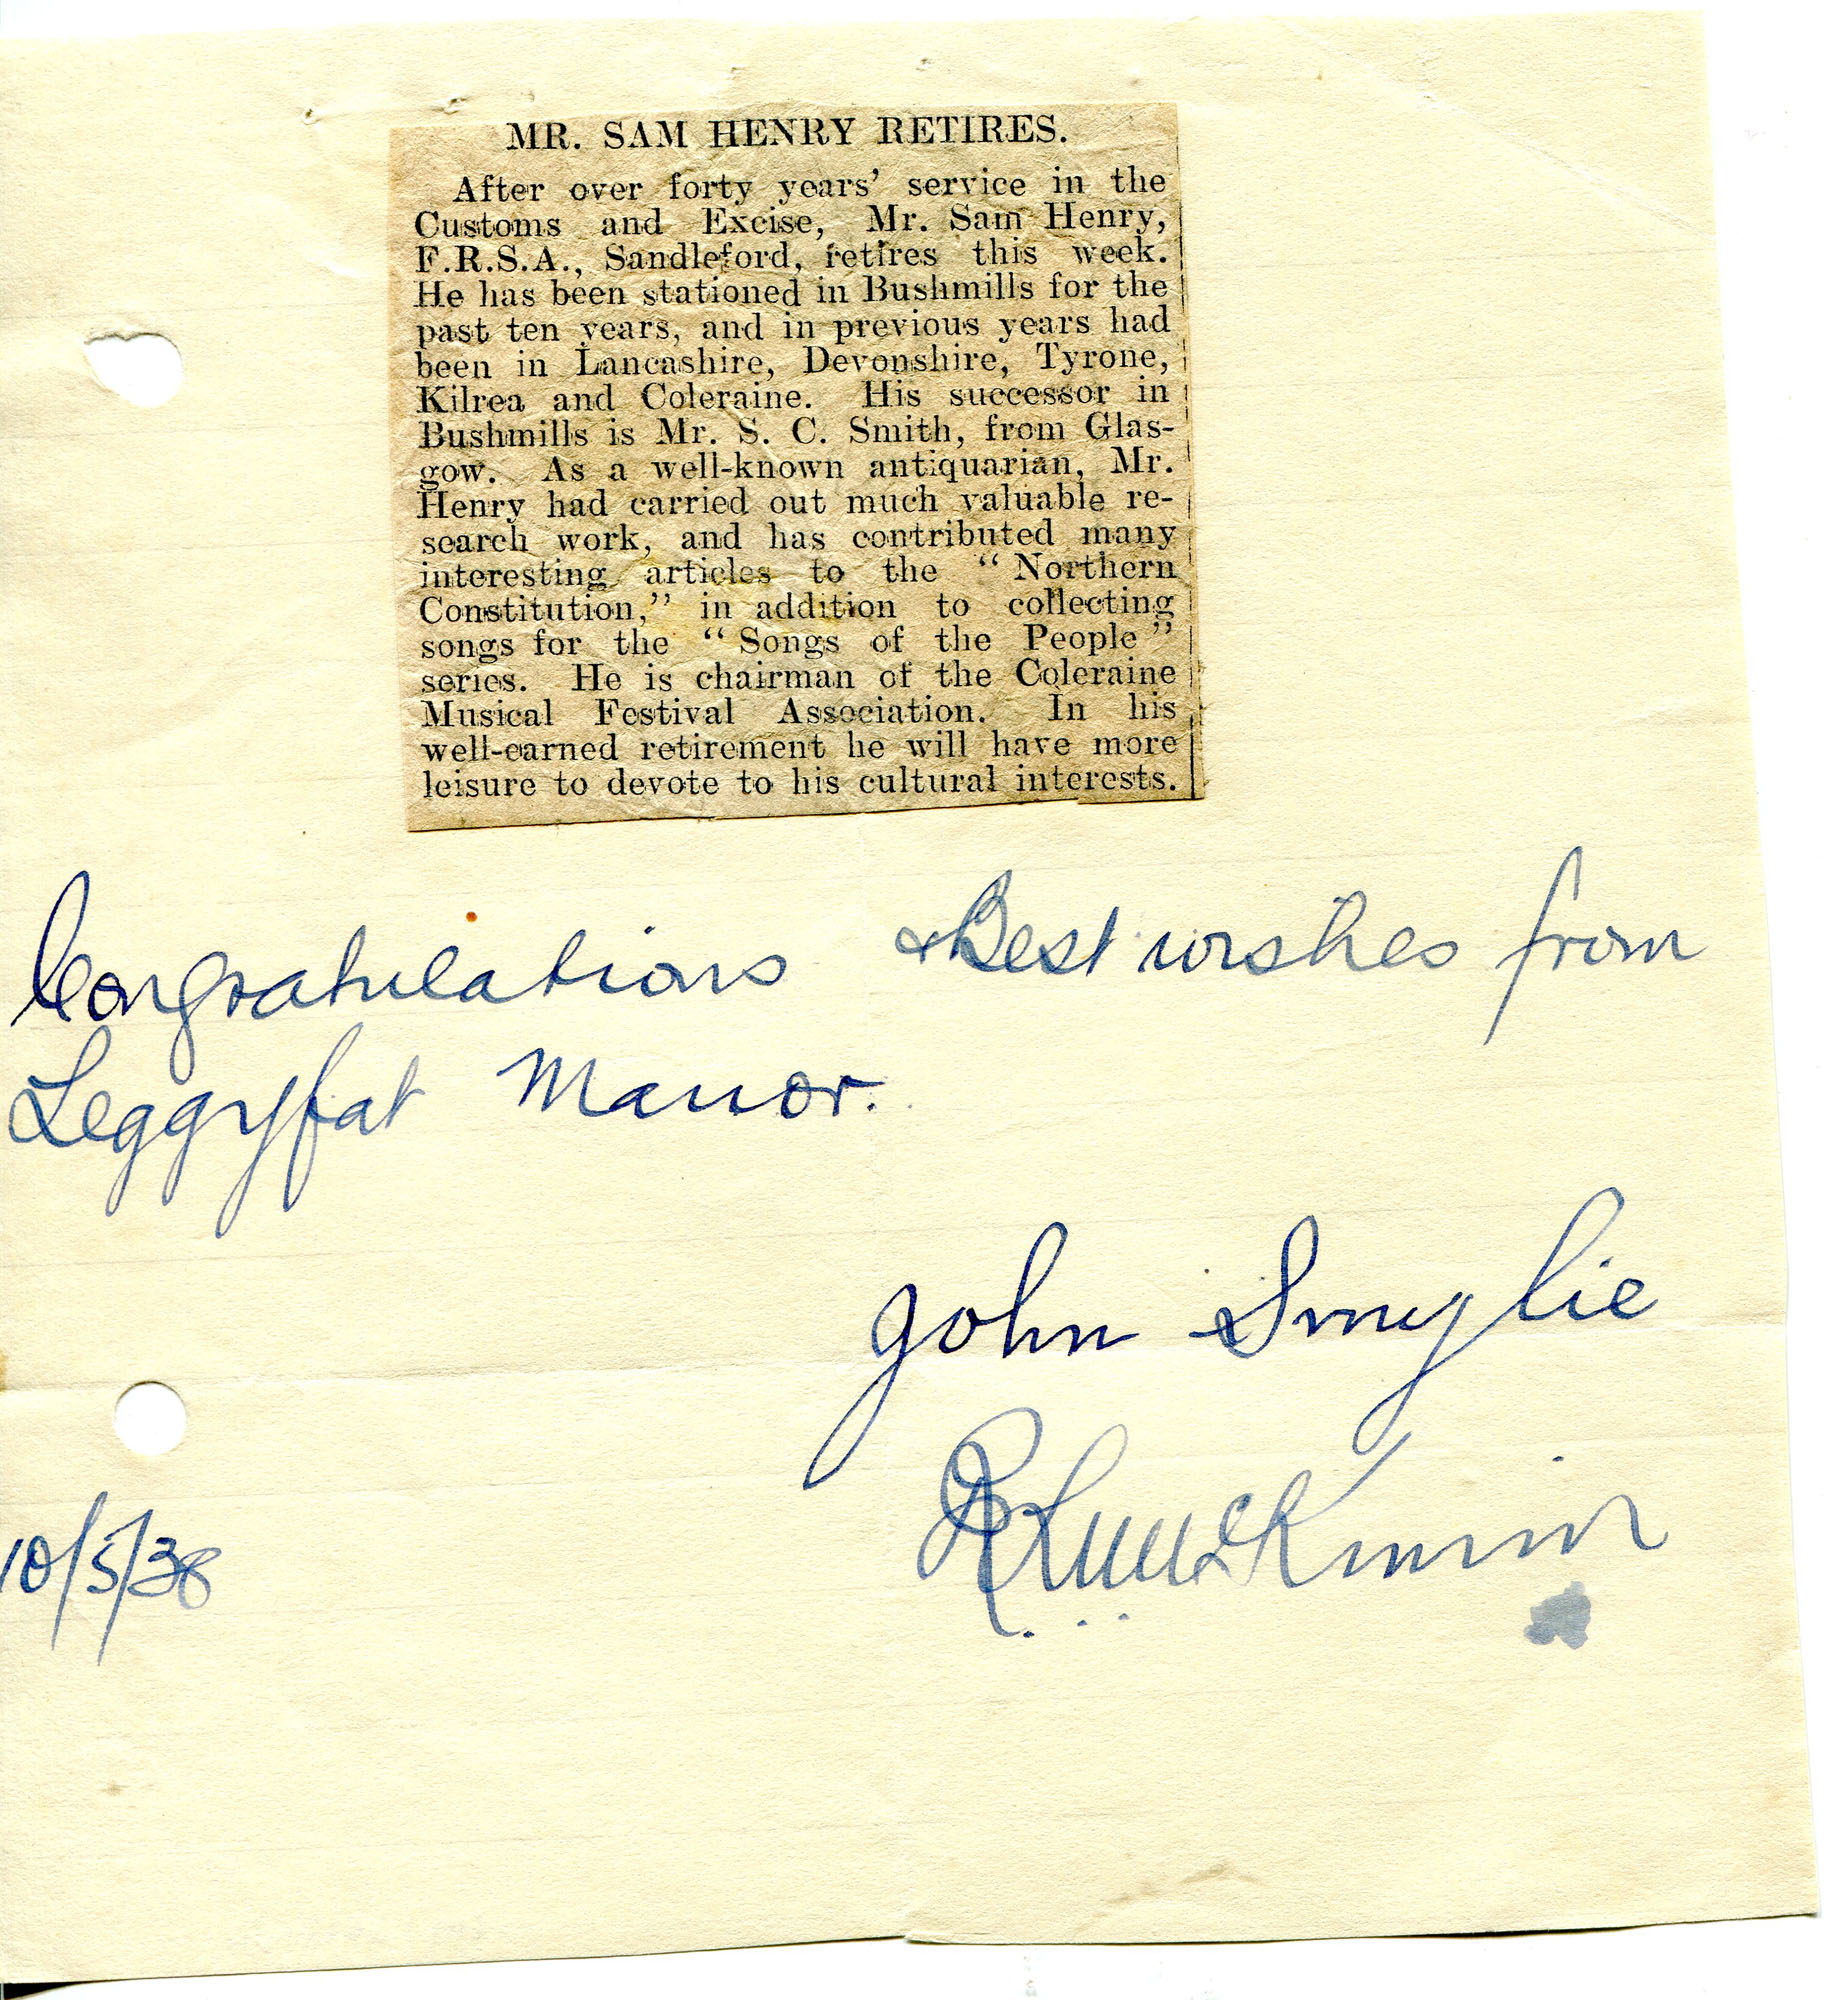 MR. SAM HENRY RETIRES.
After over forty years' service in the
Customs and Excise, Mr. Sam Henry,
F.R.S.A., Sandleford, retires this week.
He has been stationed in Bushmills for the
past ten years, and in previous years had
been in Lancashire, Devonshire, Tyrone,
Kilrea and Coleraine. His successor in
Bushmills is Mr. S. C. Smith, from Glas-
gow. As a well-known antiquarian, Mr.
Henry had carried out much valuable re-
search work, and has contributed many
interesting articles to the "Northern
Constitution," in addition to collecting
songs for the "Songs of the People"
series. He is chairman of the Coleraine
Musical Festival Association. In his
well-earned retirement he will have more
leisure to devote to his cultural interests.
Congratulations & Best wishes from
Leggyfat Manor.
John Smylie
10/5/38